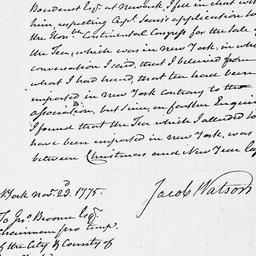 Boudinot Esqr. at Newark, I fell in chat with
him, respecting Capt. Sears's application to
the Honble. Continental Congress for the Sale of
the Tea, which was in New York, in which
conversation I said, that I believed from
what I had heard, that Tea had been
imported in New York contrary to the
association, but since, on further Enquiry
I found that the Tea which I alluded to
have been imported in New York, was
between Christmas and New Year
Jacob Watson
York Novr. 23d. 1775.
To Jno. Broome Esqr.
Chairman pro temp.
of the City & County of